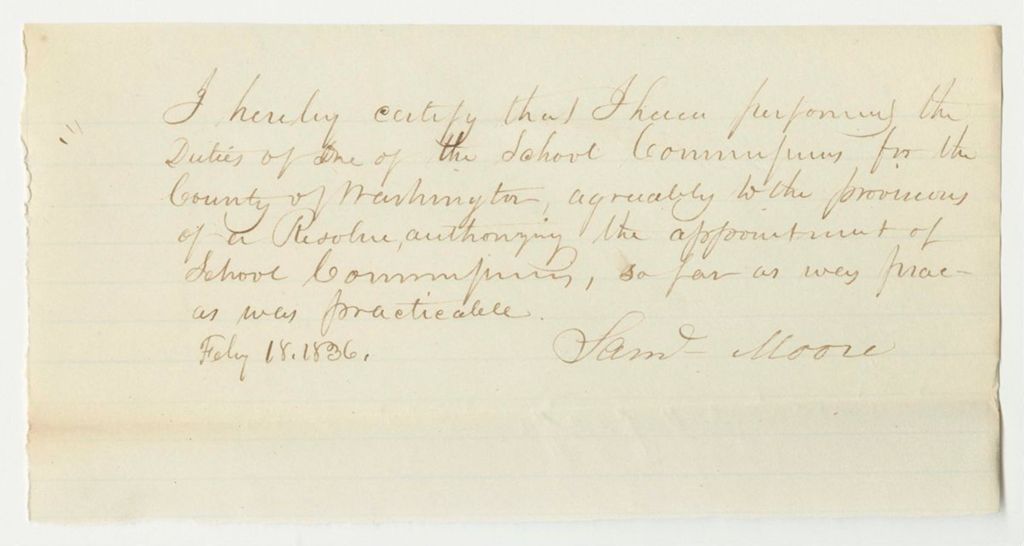 I hereby certify that I have performed the
Duties of one of the School Commissioners for the
County of Washington, agreeably to the provisions
of a Resolve, authorizing the appointment of
School Commissioners, so far as was prac-
as was practicable.
Feby 18. 1836.
Saml Moore